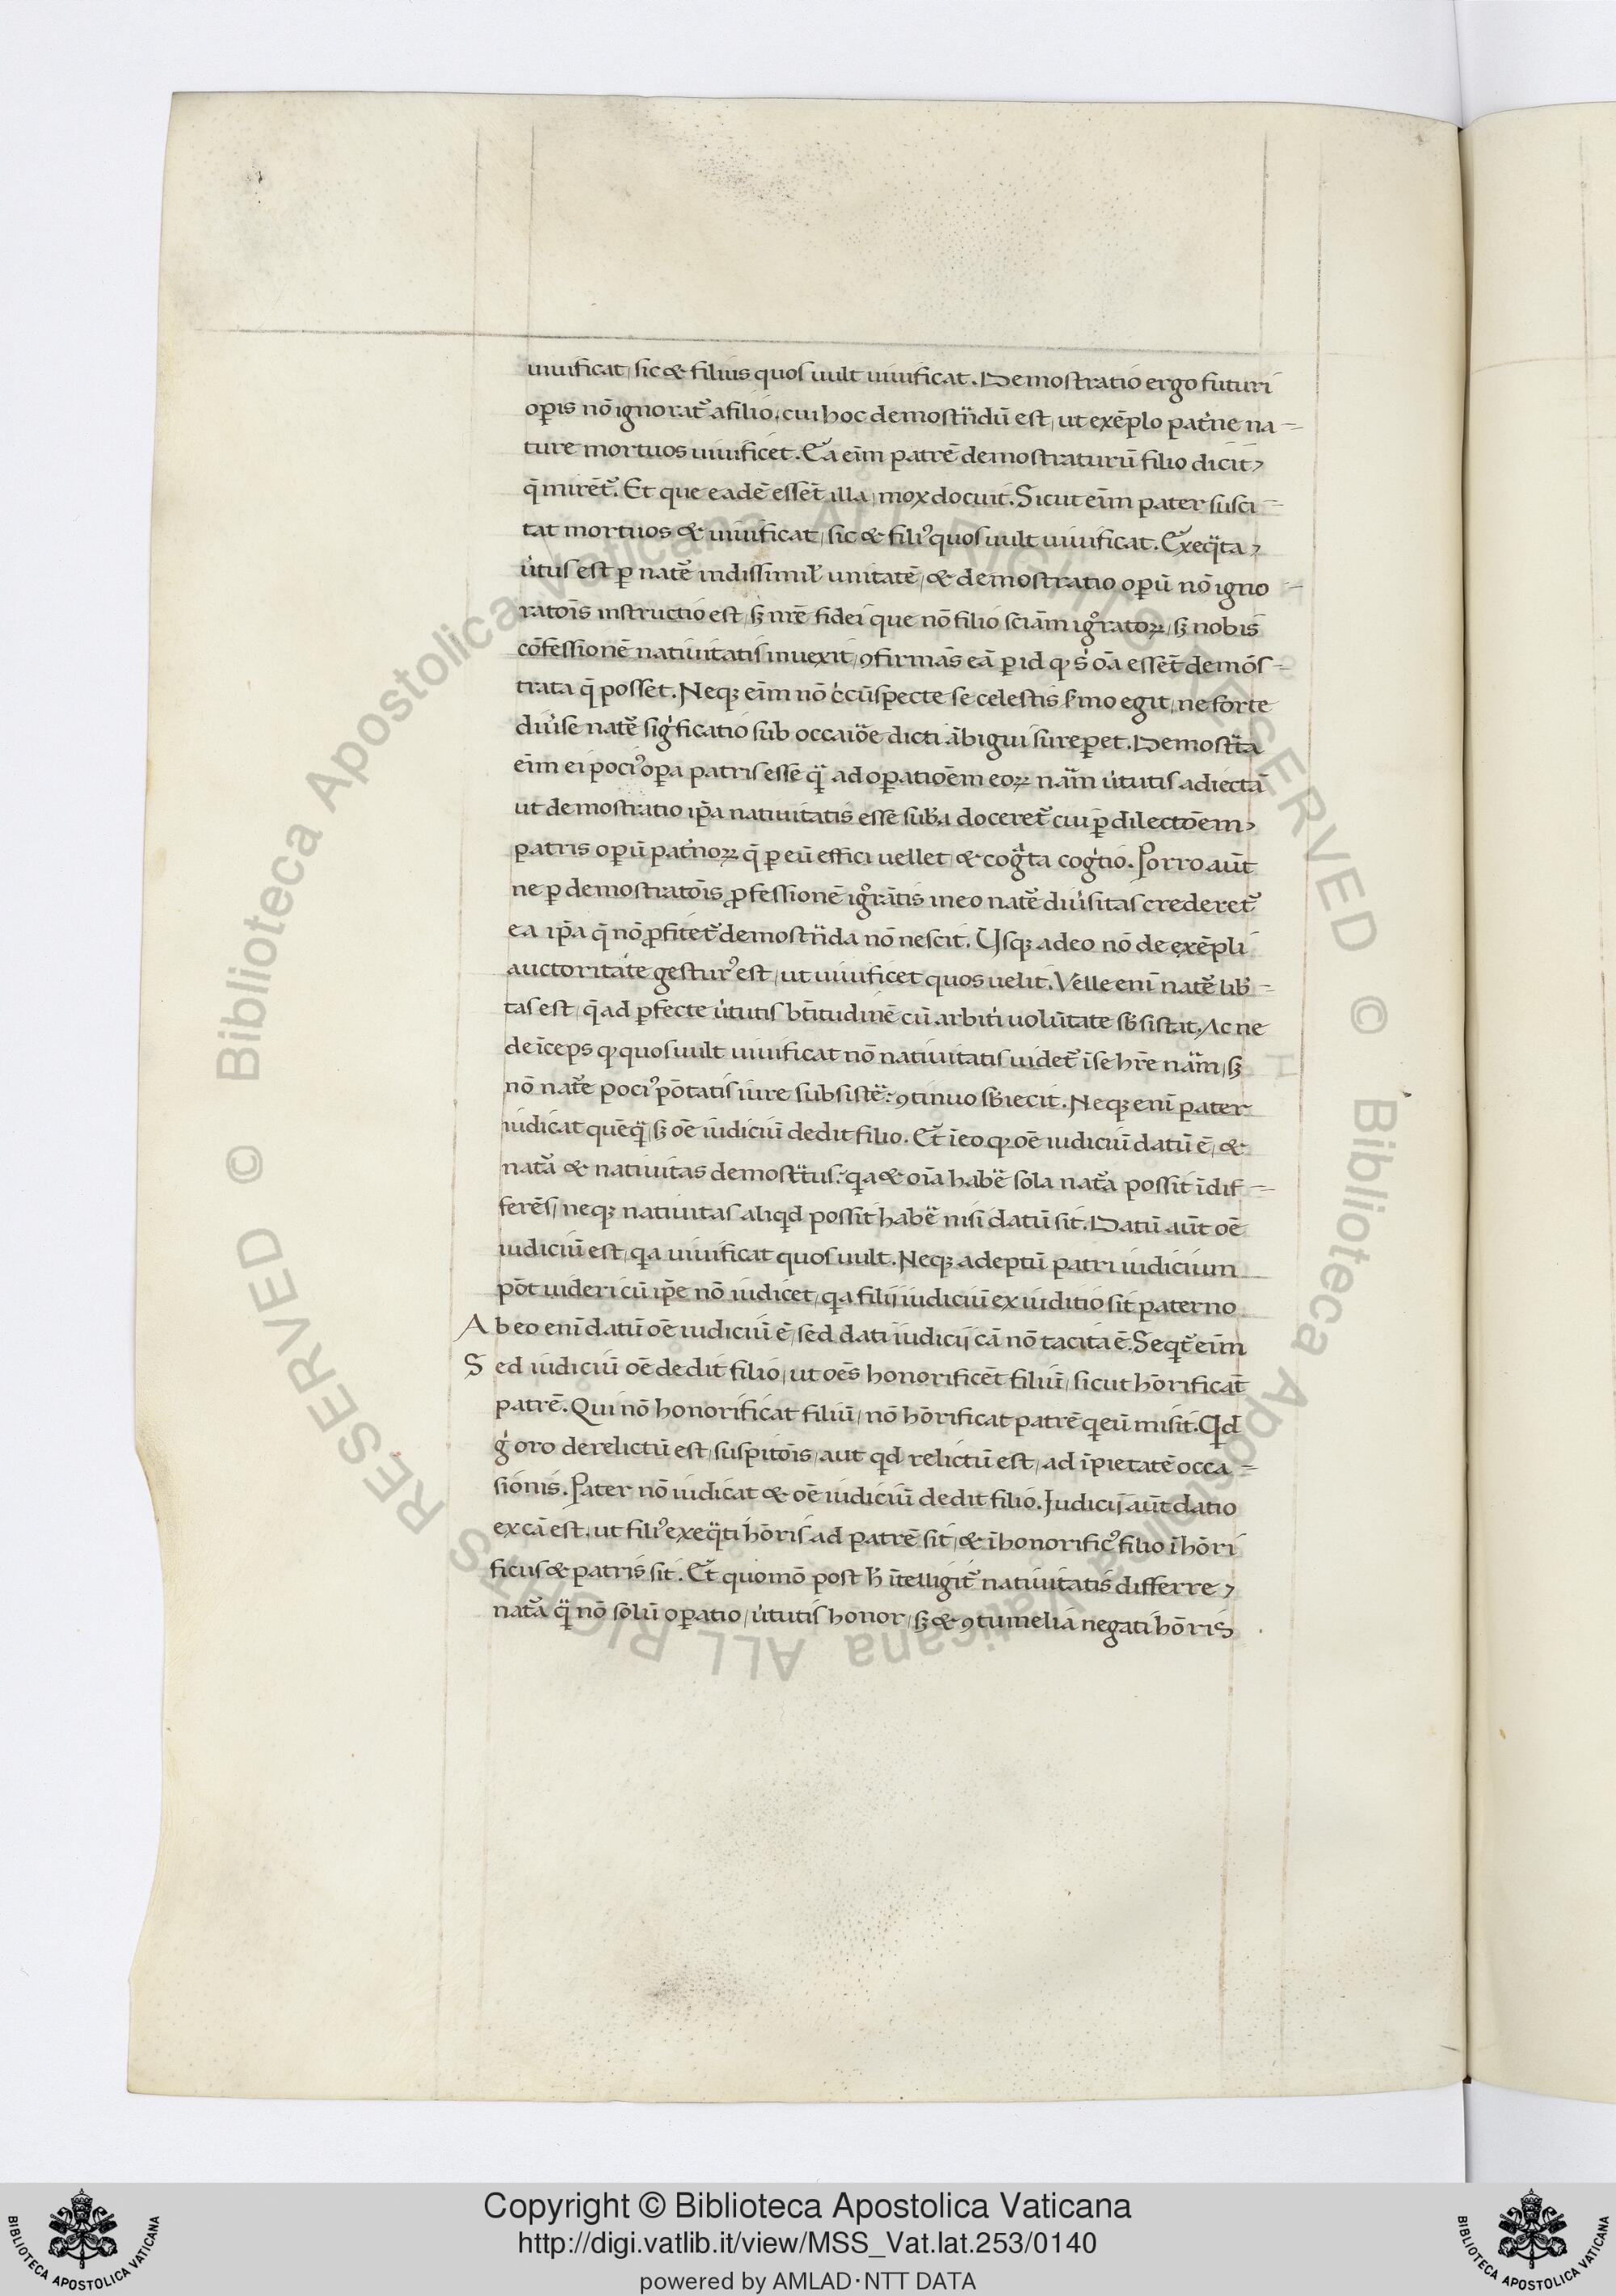 uiuificat, sic & filius quos uult uiuificat. Demostratio ergo futuri
opis nō ignorat᷑ a filio, cui hoc demostrᷓdū est, ut exēplo pat̓ne na=
ture mortuos uiuificet. Ea eīm patrē demostraturū filio dicit,
q̄ miret᷑. Et que eadē essēt illa, mox docuit. Sicut eīm pater susci=
tat mortuos & uiuificat, sic & filiꝰ quos uult uiuificat. Exeqᷓta,
u̓tus est ꝑ nat᷑e indissimil̓ unitatē, & demostratio oꝑū nō igno=
ratōis instructio est, sꝫ nr̄e fidei que nō filio sciām igͦratoꝝ, sꝫ nobis
cōfessionē natiuitatis inuexit, ꝯfirmās eā ꝑ id ꝙ s̓ oā essēt demōs=
trata q̄ posset. Neqꝫ eīm nō c̓cūspecte se celestis s̓mo egit, ne forte
diu̓se nat᷑e sig̓ficatio sub occaiōe dicti ābigui sureꝑet. Demostᷓta
eīm ei pociꝰ oꝑa patris esse qᷓ ad oꝑatiōem eoꝝ naᷓm u̓tutis adiectā
ut demostratio ip̄a natiuitatis esse sub̓a doceret᷑ cui ꝑ dilectōem,
patris oꝑū pat̓noꝝ q̄ ꝑ eū effici uellet & cogᷓta cog̓tio. Porro aūt
ne ꝑ demostratōis ꝓfessionē igͦrātis in eo nat᷑e diu̓sitas crederet᷑
ea ip̄a q̄ nō ꝓfitet᷑ demostrᷓda nō nescit. Usqꝫ adeo nō de exēpli
auctoritate gesturꝰ est, ut uiuificet quos uelit. Velle enī nat᷑e lib̓=
tas est, q̄ ad ꝑfecte u̓tutis bt̄itudinē cū arbit̓i uolūtate sb̓sistat. Ac ne
deīceps ꝙ quos uult uiuificat nō natiuitatis uidet᷑ ī se hr̄e naᷓm, sꝫ
nō nat᷑e pociꝰ pōtatis iure subsist᷑e: ꝯtinuo sb̓iecit. Neqꝫ enī pater
iudicat quēqᷓ, sꝫ oē iudiciū dedit filio. Et ī eo ꝙ oē iudiciū datū ē, &
nat᷑a & natiuitas demostᷓtus: qa & oīa hab᷑e sola nat᷑a possit īdif=
ferēs, neqꝫ natiuitas aliqd possit hab᷑e nisi datū sit. Datū aūt oē
iudiciū est, qa uiuificat quos uult. Neqꝫ adeptū patri iudicium
pōt uideri cū ip̄e nō iudicet, qa filij iudiciū ex iuditio sit paterno
Ab eo enī datū oē iudiciū ē, sed dati iudicij cā nō tacita ē. Seqt᷑ eīm
Sed iudiciū oē dedit filio, ut oēs honorificēt filiū, sicut hōrificāt
patrē. Qui nō honorificat filiū, nō hōrificat patrē q eū misit. Qd
g̓ oro derelictū est, suspitōis, aut qd relictū est, ad īpietatē occa=
sionis. Pater nō iudicat & oē iudiciū dedit filio. Judicij aūt datio
ex cā est, ut filiꝰ exeqᷓti hōris ad patrē sit, & ī honorificꝰ filio īhōri
ficus & patris sit. Et quomō post h̓ ītelligit᷑ natiuitatis differre,
nat᷑a qᷓ nō solū oꝑatio, u̓tutis honor, sꝫ & ꝯtumelia negati hōris
Copyright © Biblioteca Apostolica Vaticana
http://digi.vatlib.it/view/MSS_Vat.lat.253/0140
powered by AMLAD·NTT DATA
BIBLIOTECA APOSTOLICA VATICANA
BIBLIOTECA APOSTOLICA VATICANA
© Biblioteca Apostolica Vaticana ALL RIGHTS RESERVED © Biblioteca Apostolica Vaticana ALL RIGHTS RESERVED